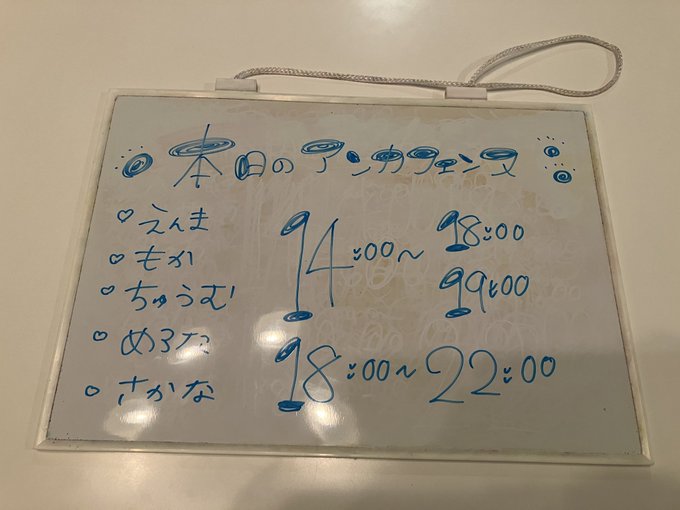 本日のアンカフェンヌ
♡えんま
♡もか
♡ちゅうむ
♡めろた
♡さかな
14:00～18:00
19:00
18:00～22:00